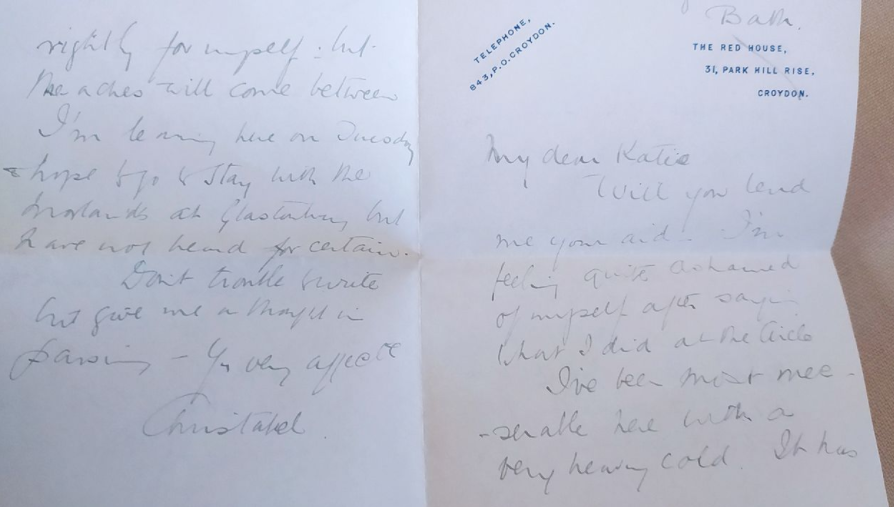 Bath.
TELEPHONE,
843, P.O. CROYDON.
THE RED HOUSE,
31, PARK HILL RISE,
CROYDON.
My dear Katie
Will you lend
me your aid. I'm
feeling quite ashamed
of myself after saying
what I did at the Circle
I've been most mee-
-serable here with a
very heavy cold. It has
rightly for myself: but
the aches will come between
I'm leaving here on Tuesday
& hope to go & stay with the
at Glastonbury but
have not heard for certain.
Don't trouble to write
but give me a thought in
passing - Yr very affecte
Christabel.